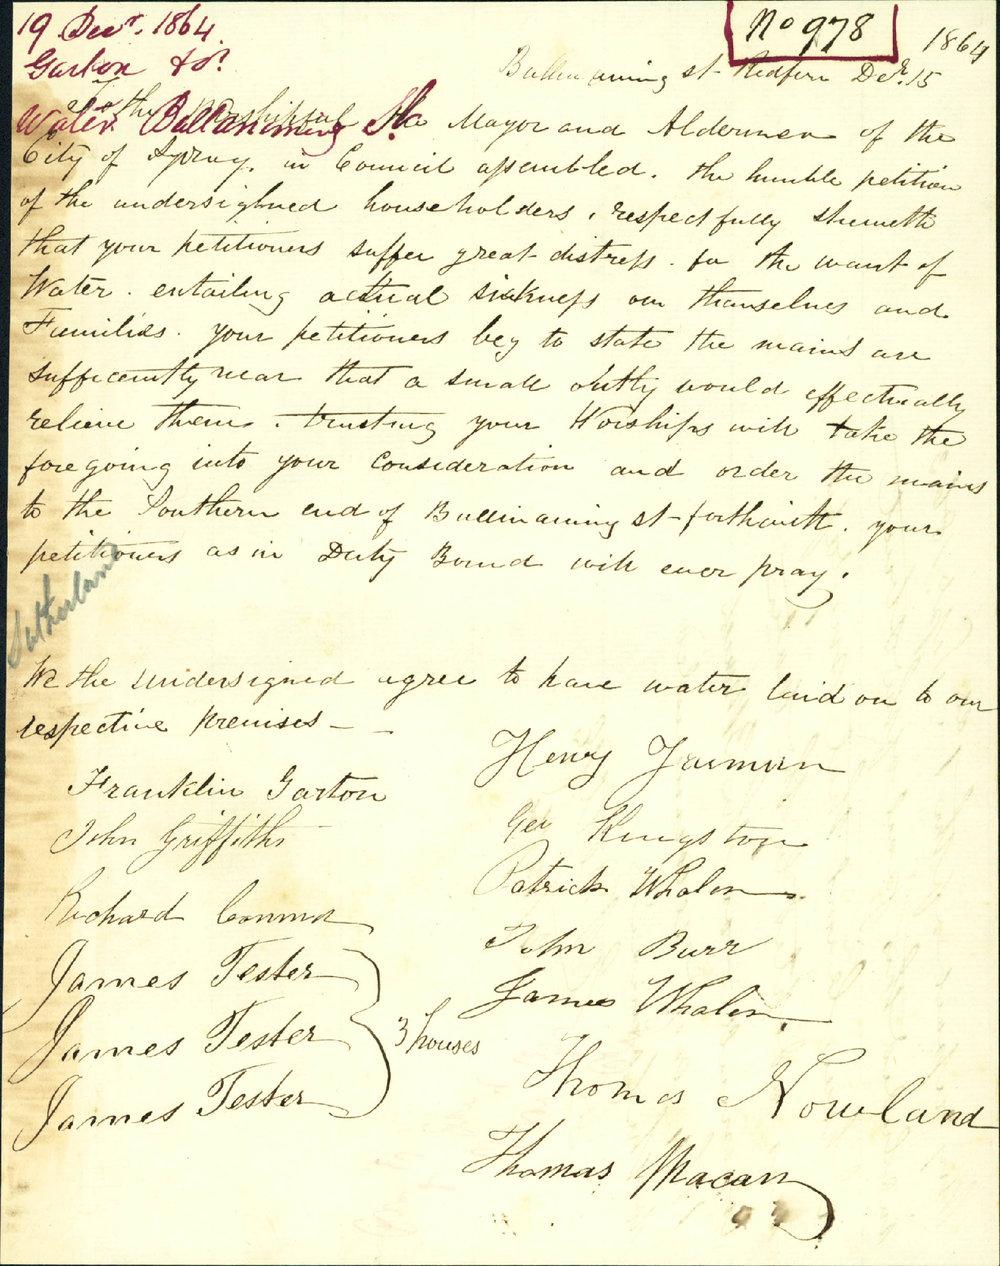 19 Decr. 1864
No 978
1864
Garton & Or
Bullinaming st- Redfern Decr. 15
Water Ballanaming St.
To the Worshipful the Mayor and Aldermen of the
City of Sydney. in Council assembled. the humble petition
of the undersighned householders, respectfully sheweth
that your petitioners suffer great distress. for the want of
Water. entailing actual sickness on themselves and
Families. your petitioners beg to state the mains are
sufficently near that a small outly would effectually
relieve them. trusting your Worships will take the
foregoing into your Consideration and order the mains
to the Southern end of Bullinaming st- forthwith. your
petitioners as in Duty Bound will ever pray.
Sutherland
We the undersigned agree to have water laid on to our
respective premises-
Henry Jarman
Franklin Garton
Geo Kingston
John Griffiths
Patrick Whalen
Richard Connor
John Burr
James Tester
James Whalen
James Tester
3 houses
Thomas Nowland
James Tester
Thomas Macan